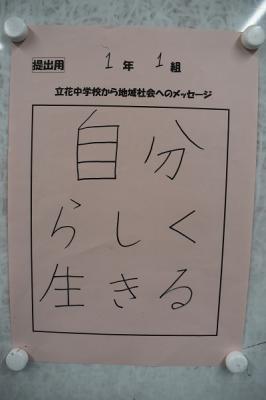 提出用 1年 1組
立花中学校から地域社会へのメッセージ
自分
らしく
生きる